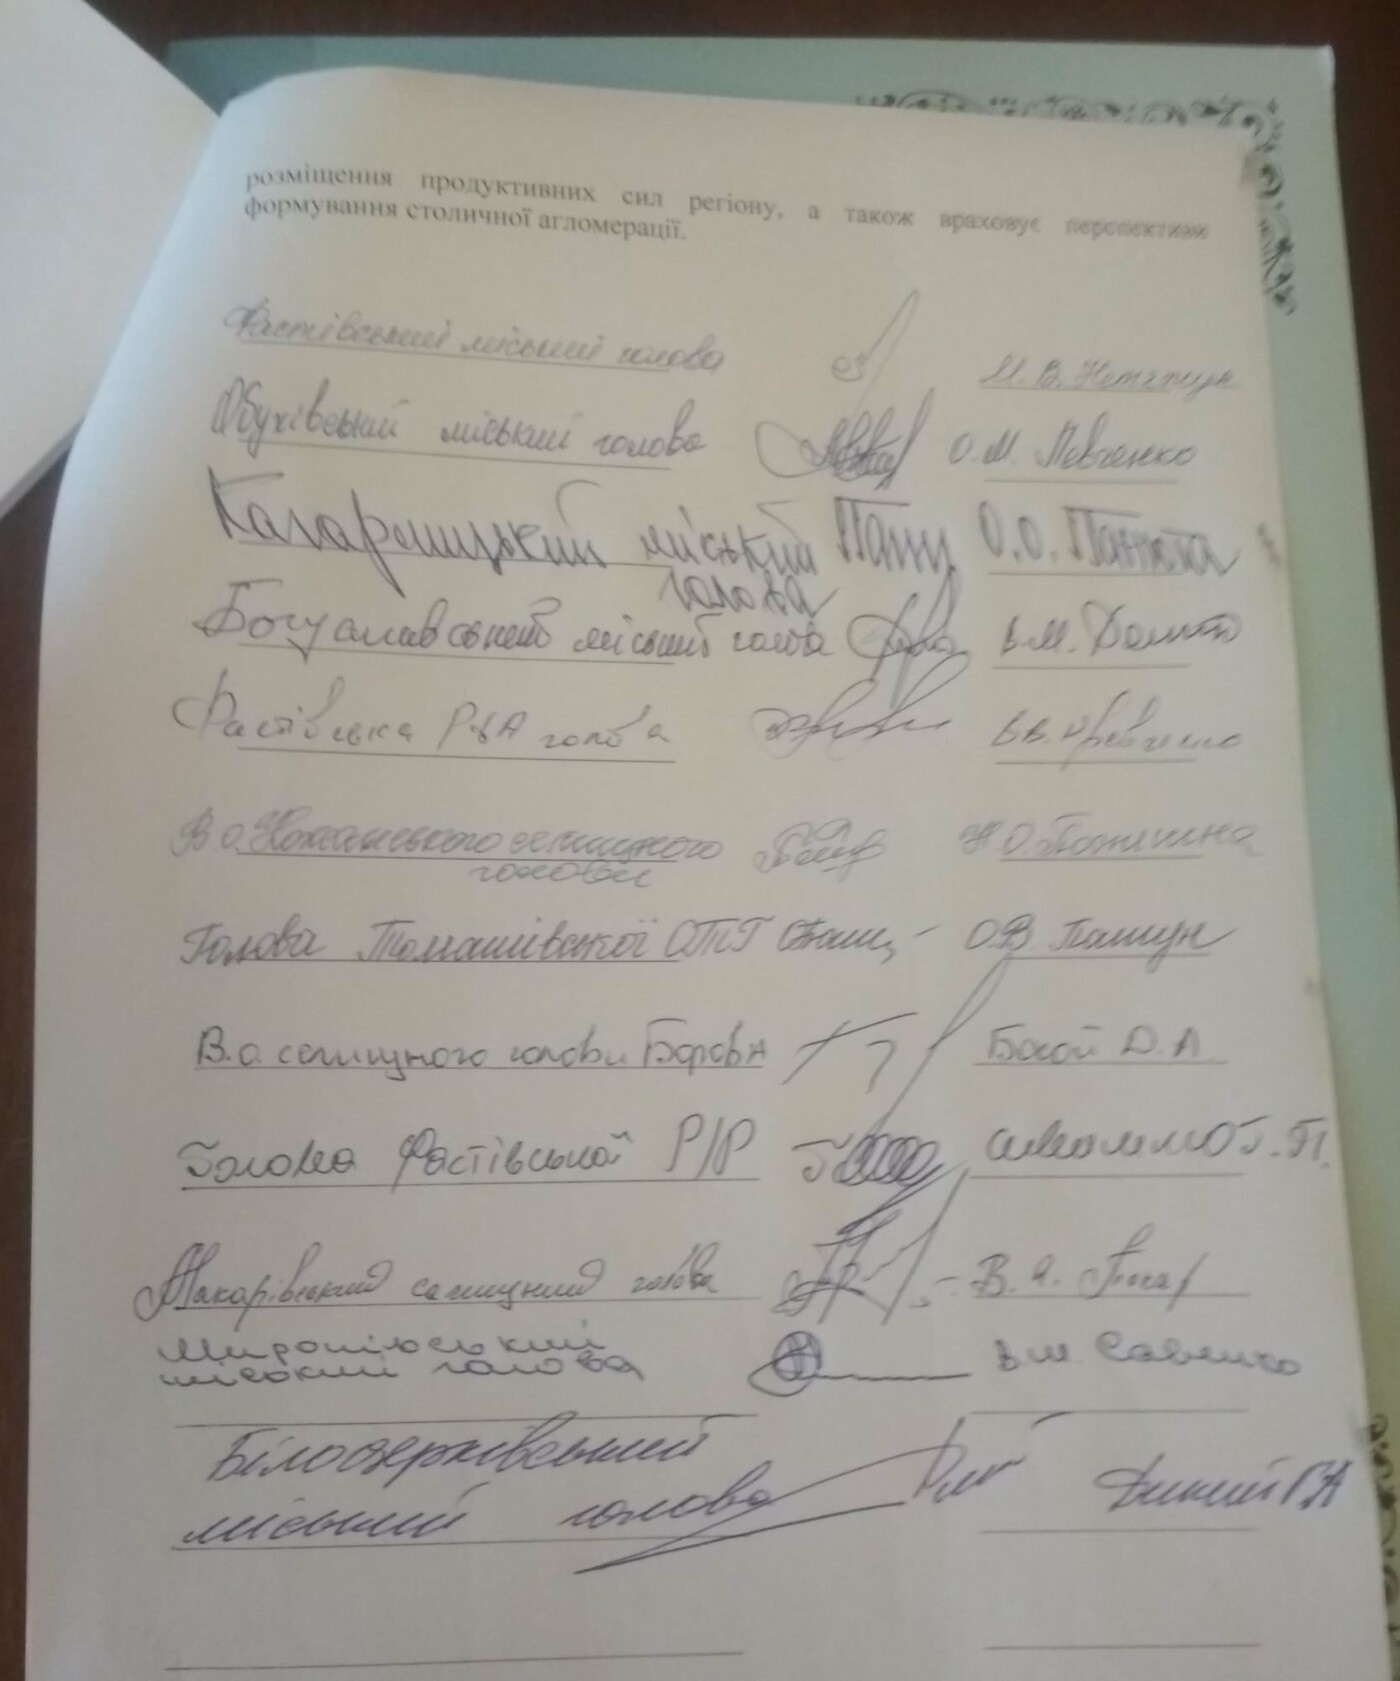 розміщення продуктивних сил регіону, а також враховує перспективи
формування столичної агломерації.
Фастівський міський голова М. В. Нетяжук
Обухівський міський голова О.М. Левченко
Кагарлицький міський О.О. Панюта
голова
Богуславський міський голова В.М.
Фастівська РДА голова В.В.
В.о. Кожанського селищного Н.О.
голови
Голова Томашівської ОТГ О В Пашун
В.о. селищного голови Борова Босой Д.А.
Голова Фастівської Р/Р Г.П.
Макарівський селищний голова В. Я. Токар
Миронівський
міський голова Савенко
Білоцерківський
міський голова Дикий Г.А